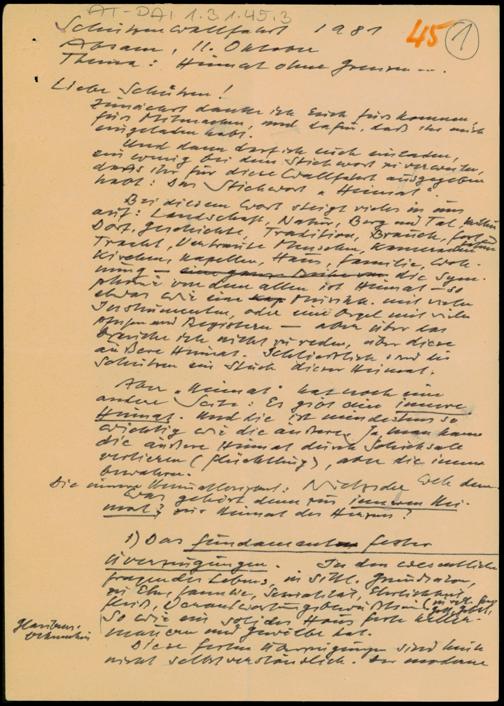 AT-DA 1.3.1.45.3
Schützenwallfahrt 1981
45 1
Absam, 11. Oktober
Thema: Heimat ohne Grenzen...
Liebe Schützen!
Zunächst danke ich Euch fürs Kommen,
fürs Mitmachen, und dafür, daß ihr mich
eingeladen habt.
Und dann darf ich euch einladen,
ein wenig bei dem Stichwort zu verweilen,
das ihr für diese Wallfahrt ausgegeben
habt: Das Stichwort "Heimat".
Bei diesem Wort steigt vieles in uns
auf: Landschaft, Natur, Berg und Tal,
Dorf, Geschichte, Tradition, Brauch,
Tracht, Vertraute Menschen, Kameraden
Kirchen, Kapellen, Haus, Familie, Woh-
nung – die Sym-
phonie von dem allen ist Heimat – so
etwas wie eine Musik mit vielen
Instrumenten, oder eine Orgel mit vielen
Pfeifen und Registern – aber über das
brauche ich nicht zu reden, über diese
äußere Heimat. Schließlich sind die
Schützen ein Stück dieser Heimat.
Aber "Heimat" hat noch eine
andere Seite: Es gibt eine innere
Heimat. Und die ist mindestens so
wichtig wie die äußere. Ja man kann
die äußere Heimat durch Schicksale
verlieren (Flüchtling), aber die innere
bewahren.
Die innere
Was gehört denn zur inneren Hei-
mat? zur Heimat des Herzens?
1) Das Fundament fester
Überzeugungen. In den wesentlichen
Fragen des Lebens, in sittl. Grundsätzen,
zu Ehe, Familie, Sexualität, Ehrlichkeit,
Fleiß, Verantwortungsbewußtsein
So wie ein solides Haus feste Keller-
mauern und Gewölbe hat.
Glaubens-
Diese festen Überzeugungen sind heute
nicht selbstverständlich. Der moderne